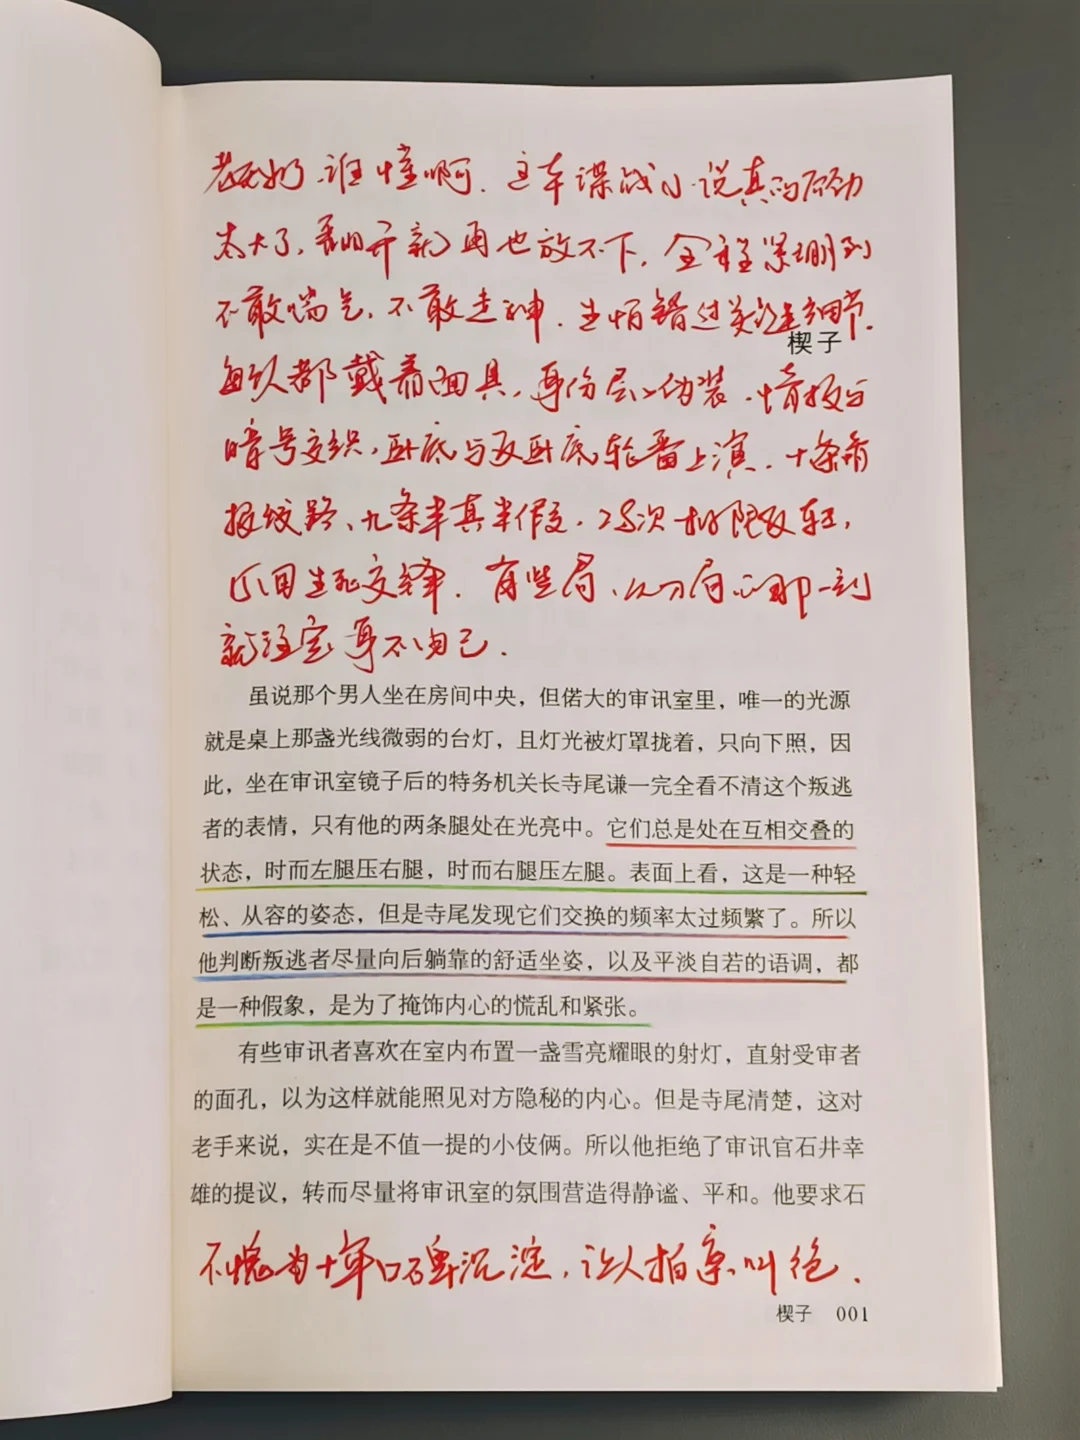 老天奶，谁懂啊，这本谍战小说真的后劲
太大了，翻开就再也放不下，全程紧绷到
不敢喘气，不敢走神，生怕错过关键细节。
楔子
每个人都戴着面具，身份层层伪装，情报与
暗号交织，卧底与反卧底轮番上演，十条情
报线路、九条半真半假，25次极限反转，
以用生死交锋，有些局，从入局的那一刻
就注定身不由己。
虽说那个男人坐在房间中央，但偌大的审讯室里，唯一的光源
就是桌上那盏光线微弱的台灯，且灯光被灯罩拢着，只向下照，因
此，坐在审讯室镜子后的特务机关长寺尾谦一完全看不清这个叛逃
者的表情，只有他的两条腿处在光亮中。它们总是处在互相交叠的
状态，时而左腿压右腿，时而右腿压左腿。表面上看，这是一种轻
松、从容的姿态，但是寺尾发现它们交换的频率太过频繁了。所以
他判断叛逃者尽量向后躺靠的舒适坐姿，以及平淡自若的语调，都
是一种假象，是为了掩饰内心的慌乱和紧张。
有些审讯者喜欢在室内布置一盏雪亮耀眼的射灯，直射受审者
的面孔，以为这样就能照见对方隐秘的内心。但是寺尾清楚，这对
老手来说，实在是不值一提的小伎俩。所以他拒绝了审讯官石井幸
雄的提议，转而尽量将审讯室的氛围营造得静谧、平和。他要求石
不愧为十年口碑沉淀，让人拍案叫绝。
楔子 001